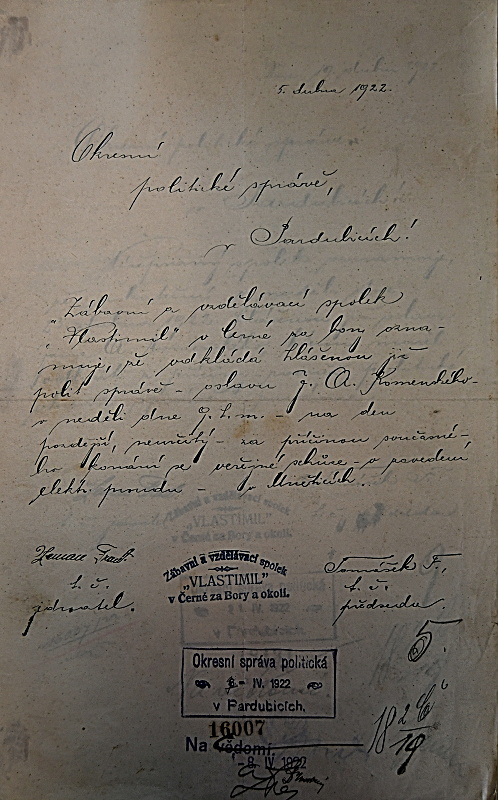 5. dubna 1922.
Okresní
politické správě,
v Pardubicích!
„Zábavní a vzdělávací spolek
„Vlastimil“ v Černé za Bory ozna-
muje, že odkládá hlášenou již
polit. správě – oslavu J. A. Komenského –
v neděli dne 9. t. m. – na den
pozdější, neurčitý – za příčinou současné-
ho konání se veřejné schůze – o zavedení
elektr. proudu – v Mněticích.
Heman Frant.
t. č.
jednatel.
Zábavní a vzdělávací spolek
„VLASTIMIL“
v Černé za Bory a okolí.
Tomášek F.,
t. č.
předseda.
5.
Okresní správa politická
6 - IV. 1922
v Pardubicích.
16007
Na vědomí.
- 8. IV. 1922
18 2/19